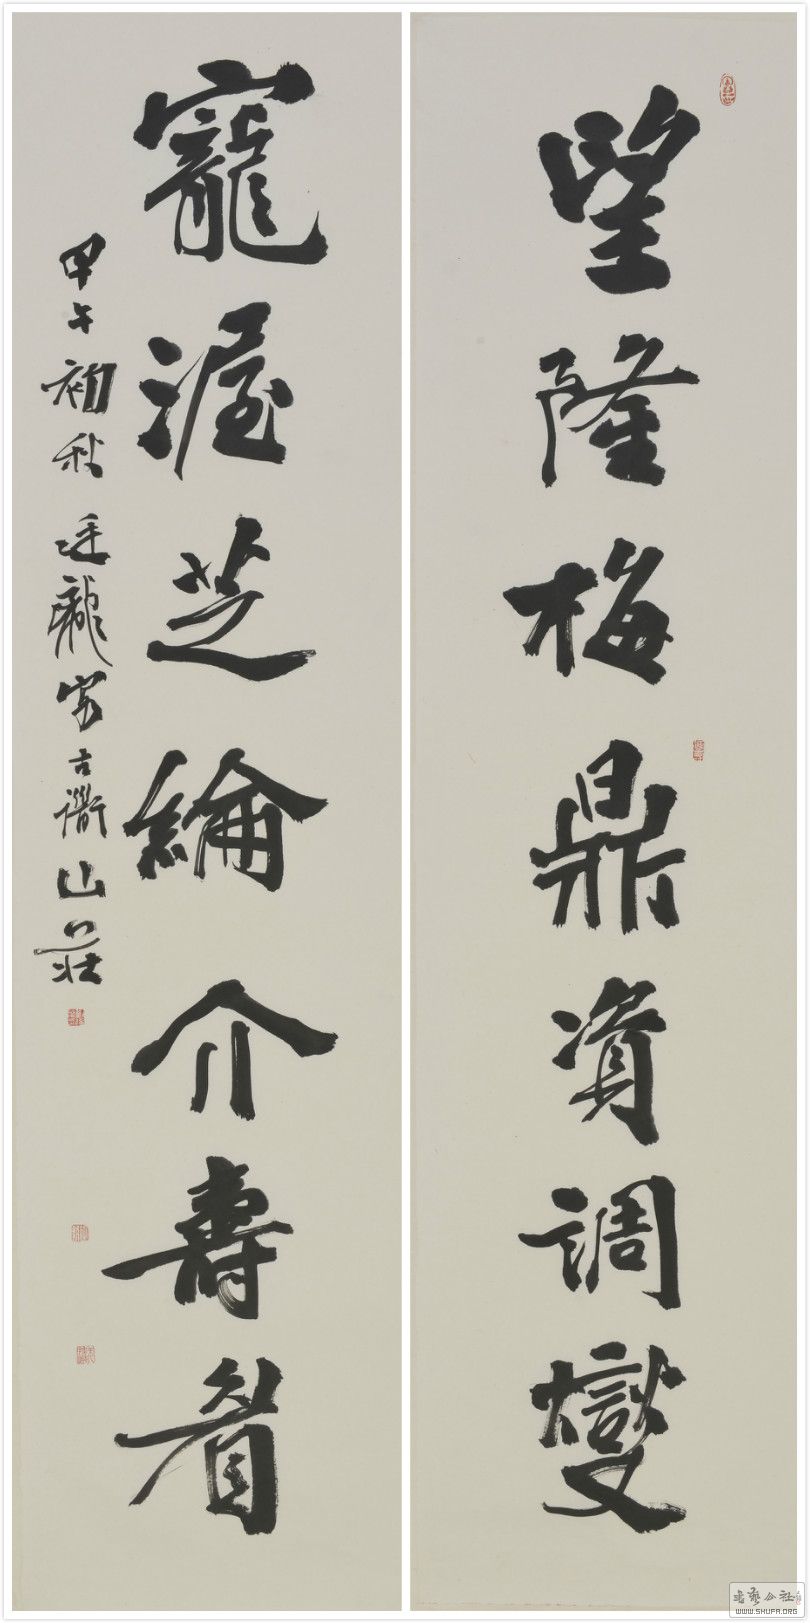 望隆梅鼎資調燮
寵渥芝綸介壽眉
甲午初秋廷龍寫古衢山莊
书艺公社
WWW.SHUFA.ORG